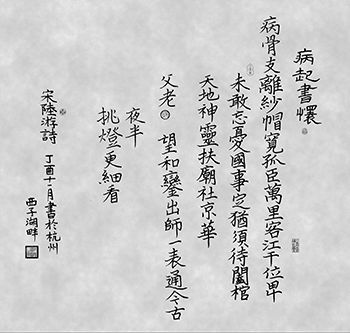 病起書懷
病骨支離紗帽寬孤臣萬里客江干位卑
未敢忘憂國事定猶須待闔棺
天地神靈扶廟社京華
父老 望和鑾出師一表通今古
夜半
挑燈更細看
宋陸游詩 丁酉十一月書於杭州
西子湖畔